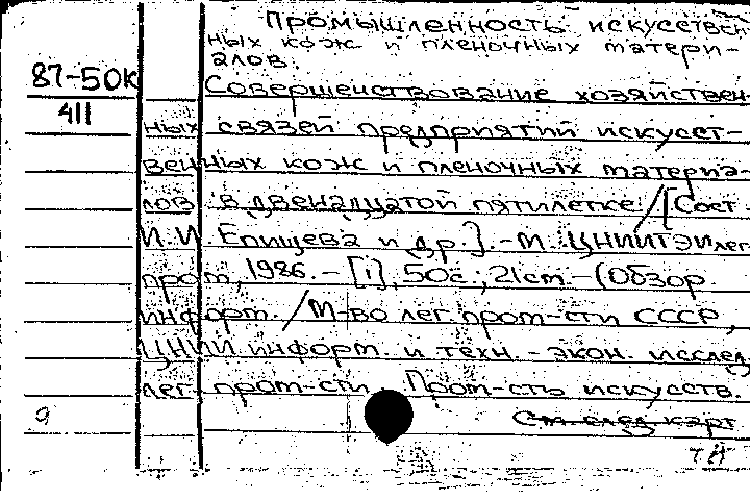 Промышленность искусствен-
ных кож и пленочных матери-
алов.
87-50К
411
Совершенствование хозяйствен-
ных связей предприятий искусст-
венных кож и пленочных материа-
лов в двенадцатой пятилетке / [Сост.
И. И. Епищева и др.]. - М. ЦНИИТЭИлег
пром, 1986. - [1], 50с.; 21см - (Обзор.
информ. / М-во лег. пром-сти СССР,
ЦНИИ информ. и техн.-экон. исслед.
лег. пром-сти. Пром-сть искусств.
9
См. след. карт.